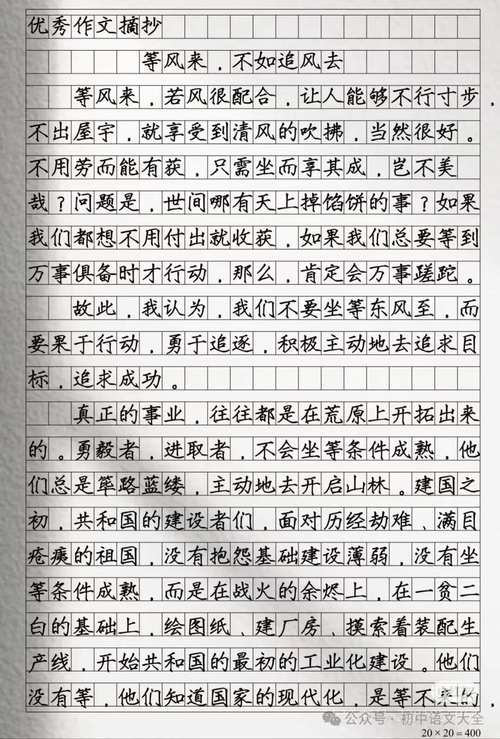 优秀作文摘抄
等风来，不如追风去
等风来，若风很配合，让人能够不行寸步，
不出屋宇，就享受到清风的吹拂，当然很好。
不用劳而能有获，只需坐而享其成，岂不美
哉？问题是，世间哪有天上掉馅饼的事？如果
我们都想不用付出就收获，如果我们总要等到
万事俱备时才行动，那么，肯定会万事蹉跎。
故此，我认为，我们不要坐等东风至，而
要果于行动，勇于追逐，积极主动地去追求目
标，追求成功。
真正的事业，往往都是在荒原上开拓出来
的。勇毅者，进取者，不会坐等条件成熟，他
们总是筚路蓝缕，主动地去开启山林。建国之
初，共和国的建设者们，面对历经劫难、满目
疮痍的祖国，没有抱怨基础建设薄弱，没有坐
等条件成熟，而是在战火的余烬上，在一贫二
白的基础上，绘图纸、建厂房、摸索着装配生
产线，开始共和国的最初的工业化建设。他们
没有等，他们知道国家的现代化，是等不来的，
公众号·初中语文大全
20×20=400